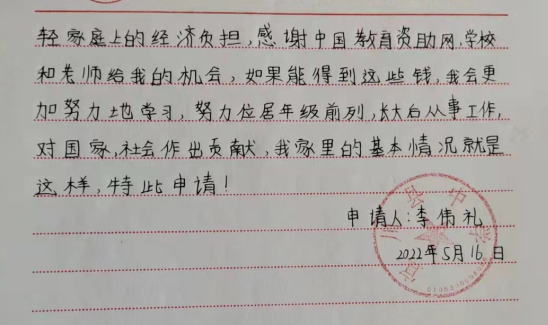 轻家庭上的经济负担，感谢中国教育资助网，学校
和老师给我的机会，如果能得到这些钱，我会更
加努力地学习，努力位居年级前列，长大后从事工作，
对国家，社会作出贡献，我家里的基本情况就是
这样，特此申请！
申请人：李伟礼
2022年5月16日